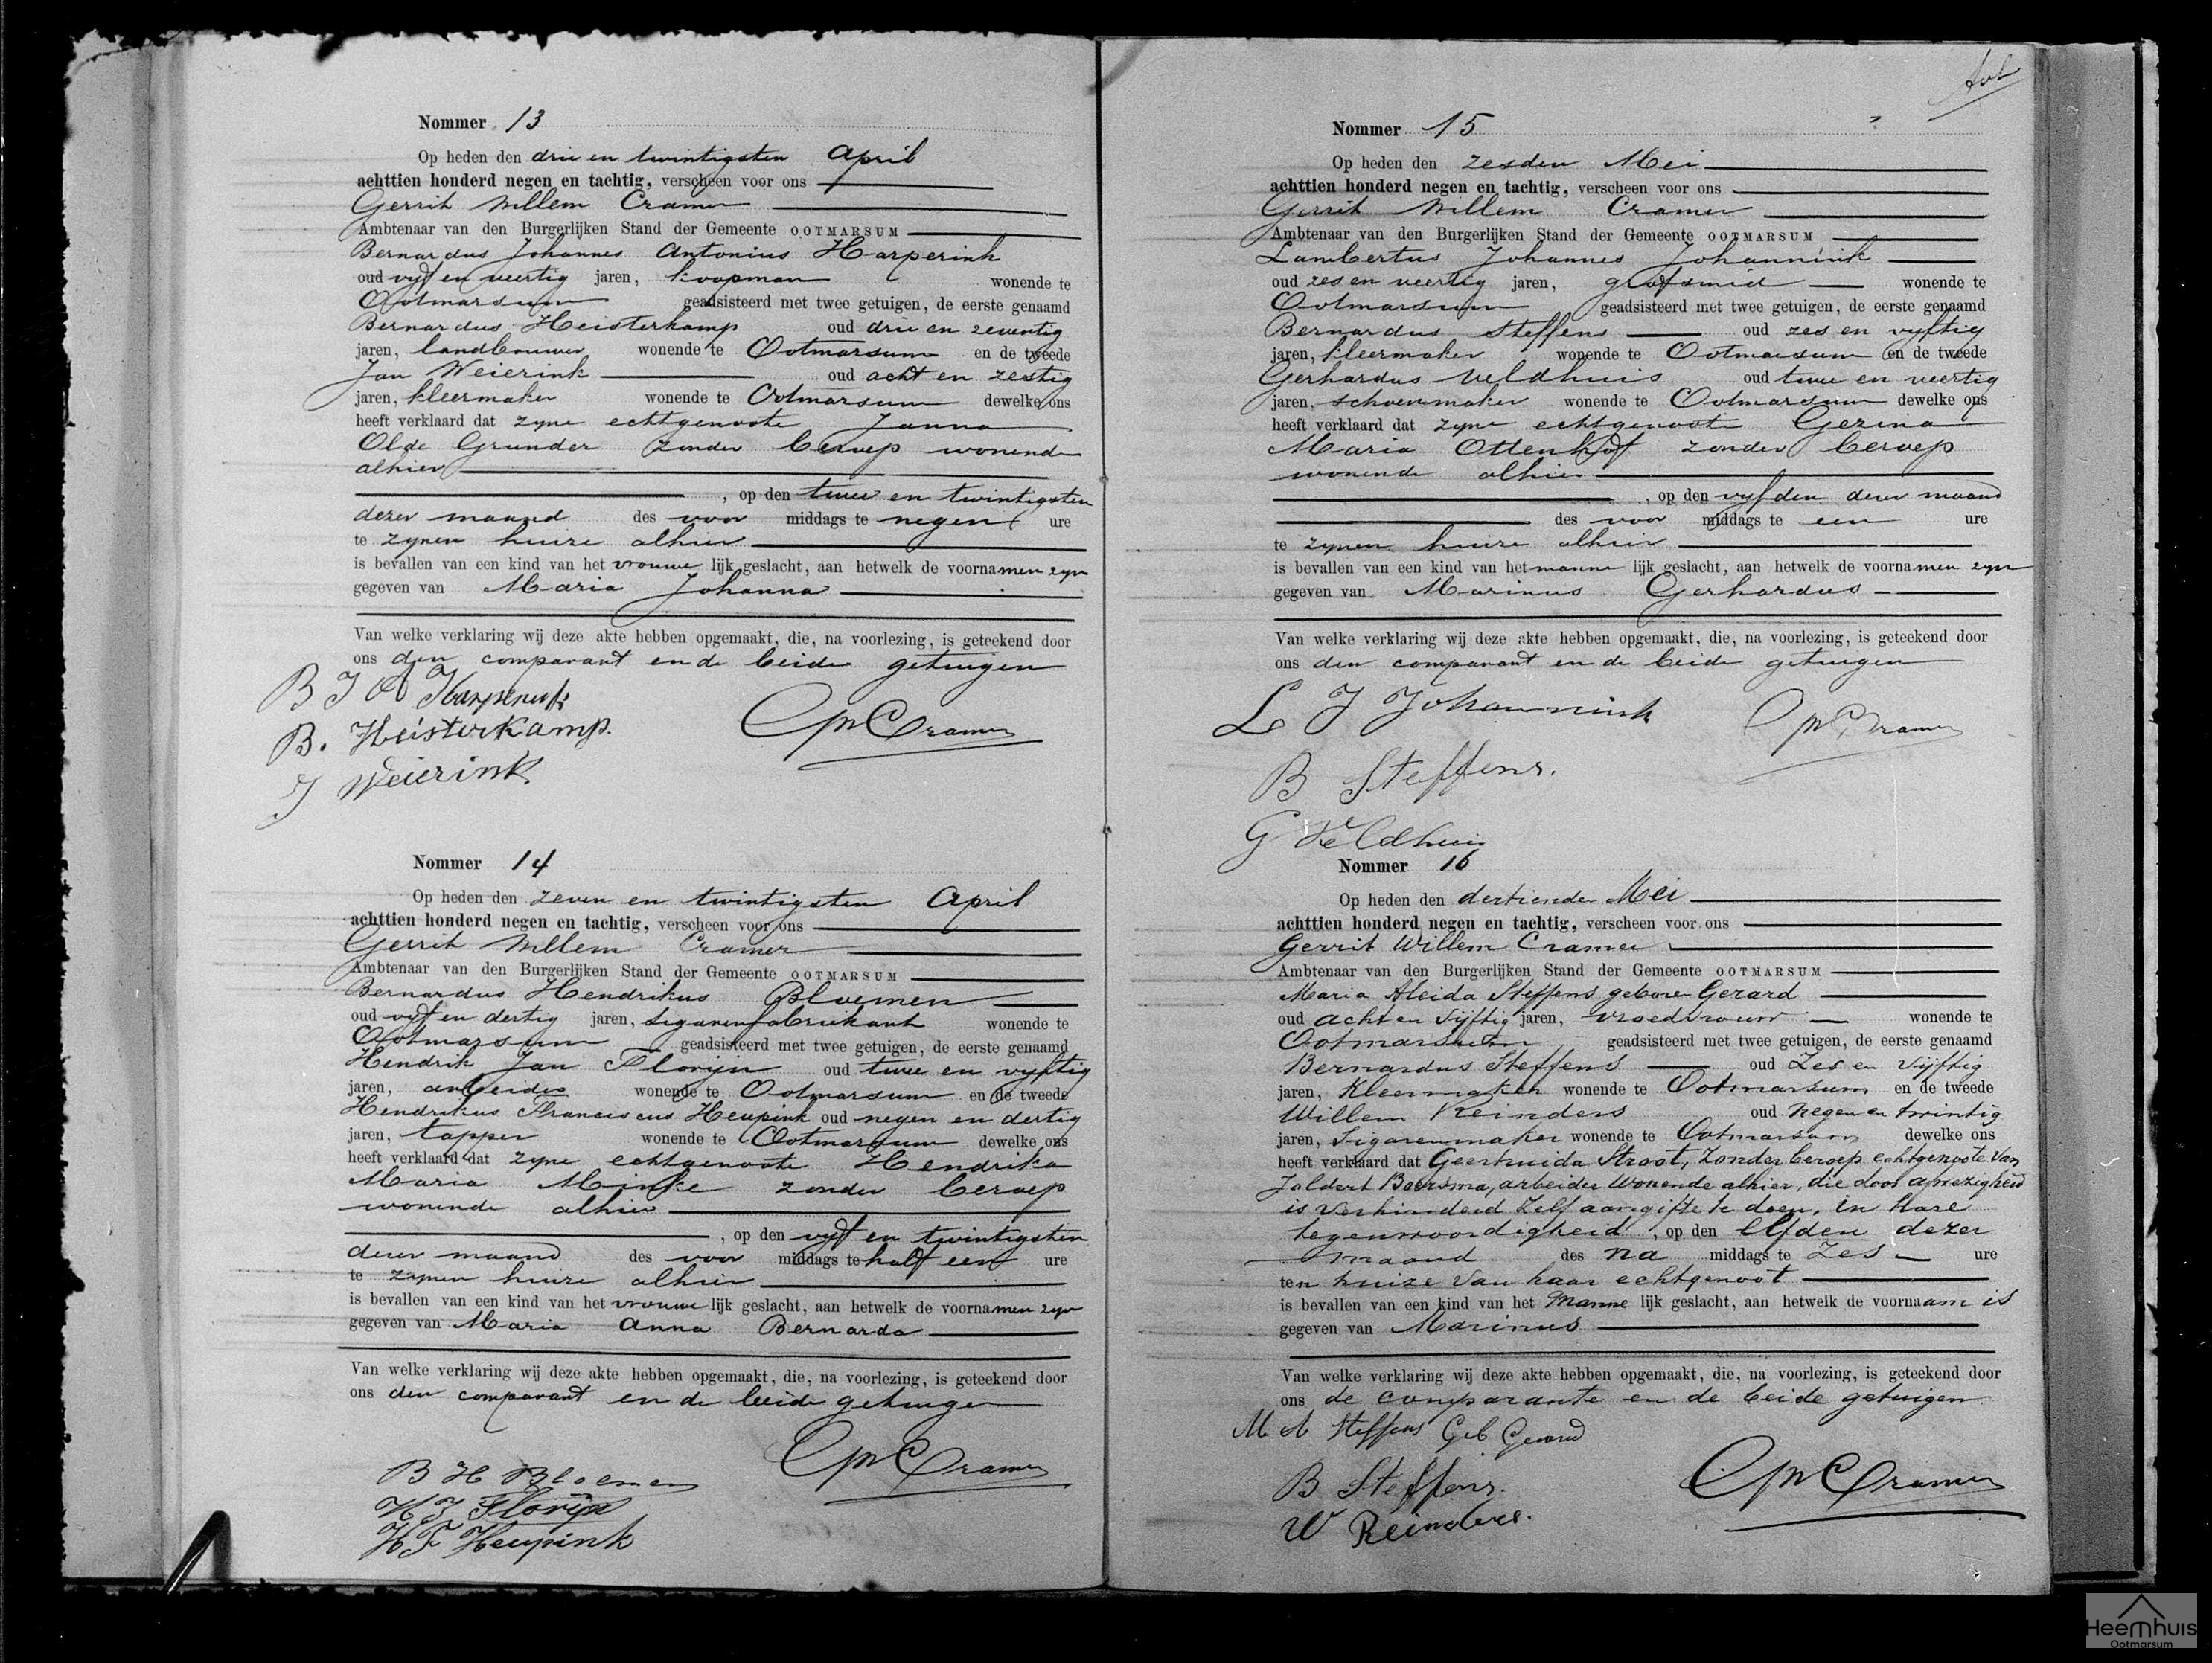 Nommer 13
Op heden den drie en twintigsten April
achttien honderd negen en tachtig, verscheen voor ons
Gerrit Willem Cramer
Ambtenaar van den Burgerlijken Stand der Gemeente OOTMARSUM
Bernardus Johannes Antonius Harperink
oud vijf en veertig jaren, koopman wonende te
Ootmarsum geadsisteerd met twee getuigen, de eerste genaamd
Bernardus Heisterkamp oud drie en zeventig
jaren, landbouwer wonende te Ootmarsum en de tweede
Jan Weierink oud acht en zestig
jaren, kleermaker wonende te Ootmarsum dewelke ons
heeft verklaard dat zyne echtgenoote Janna
Olde Grunder zonder beroep wonende
alhier
, op den twee en twintigsten
dezer maand des voor middags te negen ure
te zynen huize alhier
is bevallen van een kind van het vrouwe lijk geslacht, aan hetwelk de voornamen zyn
gegeven van Maria Johanna
Van welke verklaring wij deze akte hebben opgemaakt, die, na voorlezing, is geteekend door
ons den comparant en de beide getuigen
B J A Harperink
B. Heisterkamp. GWCramer
J Weierink
Nommer 14
Op heden den zeven en twintigsten April
achttien honderd negen en tachtig, verscheen voor ons
Gerrit Willem Cramer
Ambtenaar van den Burgerlijken Stand der Gemeente OOTMARSUM
Bernardus Hendrikus Bloemen
oud vijf en dertig jaren, sigarenfabriekant wonende te
Ootmarsum geadsisteerd met twee getuigen, de eerste genaamd
Hendrik Jan Florijn oud twee en vyftig
jaren, arbeider wonende te Ootmarsum en de tweede
Hendrikus Franciscus Heupink oud negen en dertig
jaren, tapper wonende te Ootmarsum dewelke ons
heeft verklaard dat zyne echtgenoote Hendrika
Maria Minke zonder beroep
wonende alhier
, op den vijf en twintigsten
dezer maand des voor middags te half een ure
te zynen huize alhier
is bevallen van een kind van het vrouwe lijk geslacht, aan hetwelk de voornamen zyn
gegeven van Maria Anna Bernarda
Van welke verklaring wij deze akte hebben opgemaakt, die, na voorlezing, is geteekend door
ons den comparant en de beide getuigen
GWCramer
B H Bloemen
H J Florijn
H F Heupink
Nommer 15
Op heden den zesden Mei
achttien honderd negen en tachtig, verscheen voor ons
Gerrit Willem Cramer
Ambtenaar van den Burgerlijken Stand der Gemeente OOTMARSUM
Lambertus Johannes Johannink
oud zes en veertig jaren, grofsmid wonende te
Ootmarsum geadsisteerd met twee getuigen, de eerste genaamd
Bernardus Steffens oud zes en vyftig
jaren, kleermaker wonende te Ootmarsum en de tweede
Gerhardus Veldhuis oud twee en veertig
jaren, schoenmaker wonende te Ootmarsum dewelke ons
heeft verklaard dat zyne echtgenoote Gezina
Maria Ottenhof zonder beroep
wonende alhier
, op den vyfden dezer maand
des voor middags te een ure
te zynen huize alhier
is bevallen van een kind van het manne lijk geslacht, aan hetwelk de voornamen zyn
gegeven van Marinus Gerhardus
Van welke verklaring wij deze akte hebben opgemaakt, die, na voorlezing, is geteekend door
ons den comparant en de beide getuigen
L J Johannink GWCramer
B Steffens.
G Veldhuis
Nommer 16
Op heden den dertienden Mei
achttien honderd negen en tachtig, verscheen voor ons
Gerrit Willem Cramer
Ambtenaar van den Burgerlijken Stand der Gemeente OOTMARSUM
Maria Aleida Steffens geboren Gerard
oud acht en vijftig jaren, vroedvrouw wonende te
Ootmarsum geadsisteerd met twee getuigen, de eerste genaamd
Bernardus Steffens oud Zes en vijftig
jaren, Kleermaker wonende te Ootmarsum en de tweede
Willem Reinders oud Negen en twintig
jaren, Sigarenmaker wonende te Ootmarsum dewelke ons
heeft verklaard dat Geertruida Stroot, Zonder beroep echtgenoote van
Jaldert Boersma, arbeider wonende alhier, die door afwezigheid
is verhinderd Zelf aangifte te doen, in Hare
tegenwoordigheid, op den Elfden dezer
maand des na middags te Zes ure
ten huize van haar echtgenoot
is bevallen van een kind van het Manne lijk geslacht, aan hetwelk de voornaam is
gegeven van Marinus
Van welke verklaring wij deze akte hebben opgemaakt, die, na voorlezing, is geteekend door
ons de comparante en de beide getuigen
M A Steffens Geb Gerard
B Steffens. GWCramer
W Reinders.
Heemhuis
Ootmarsum